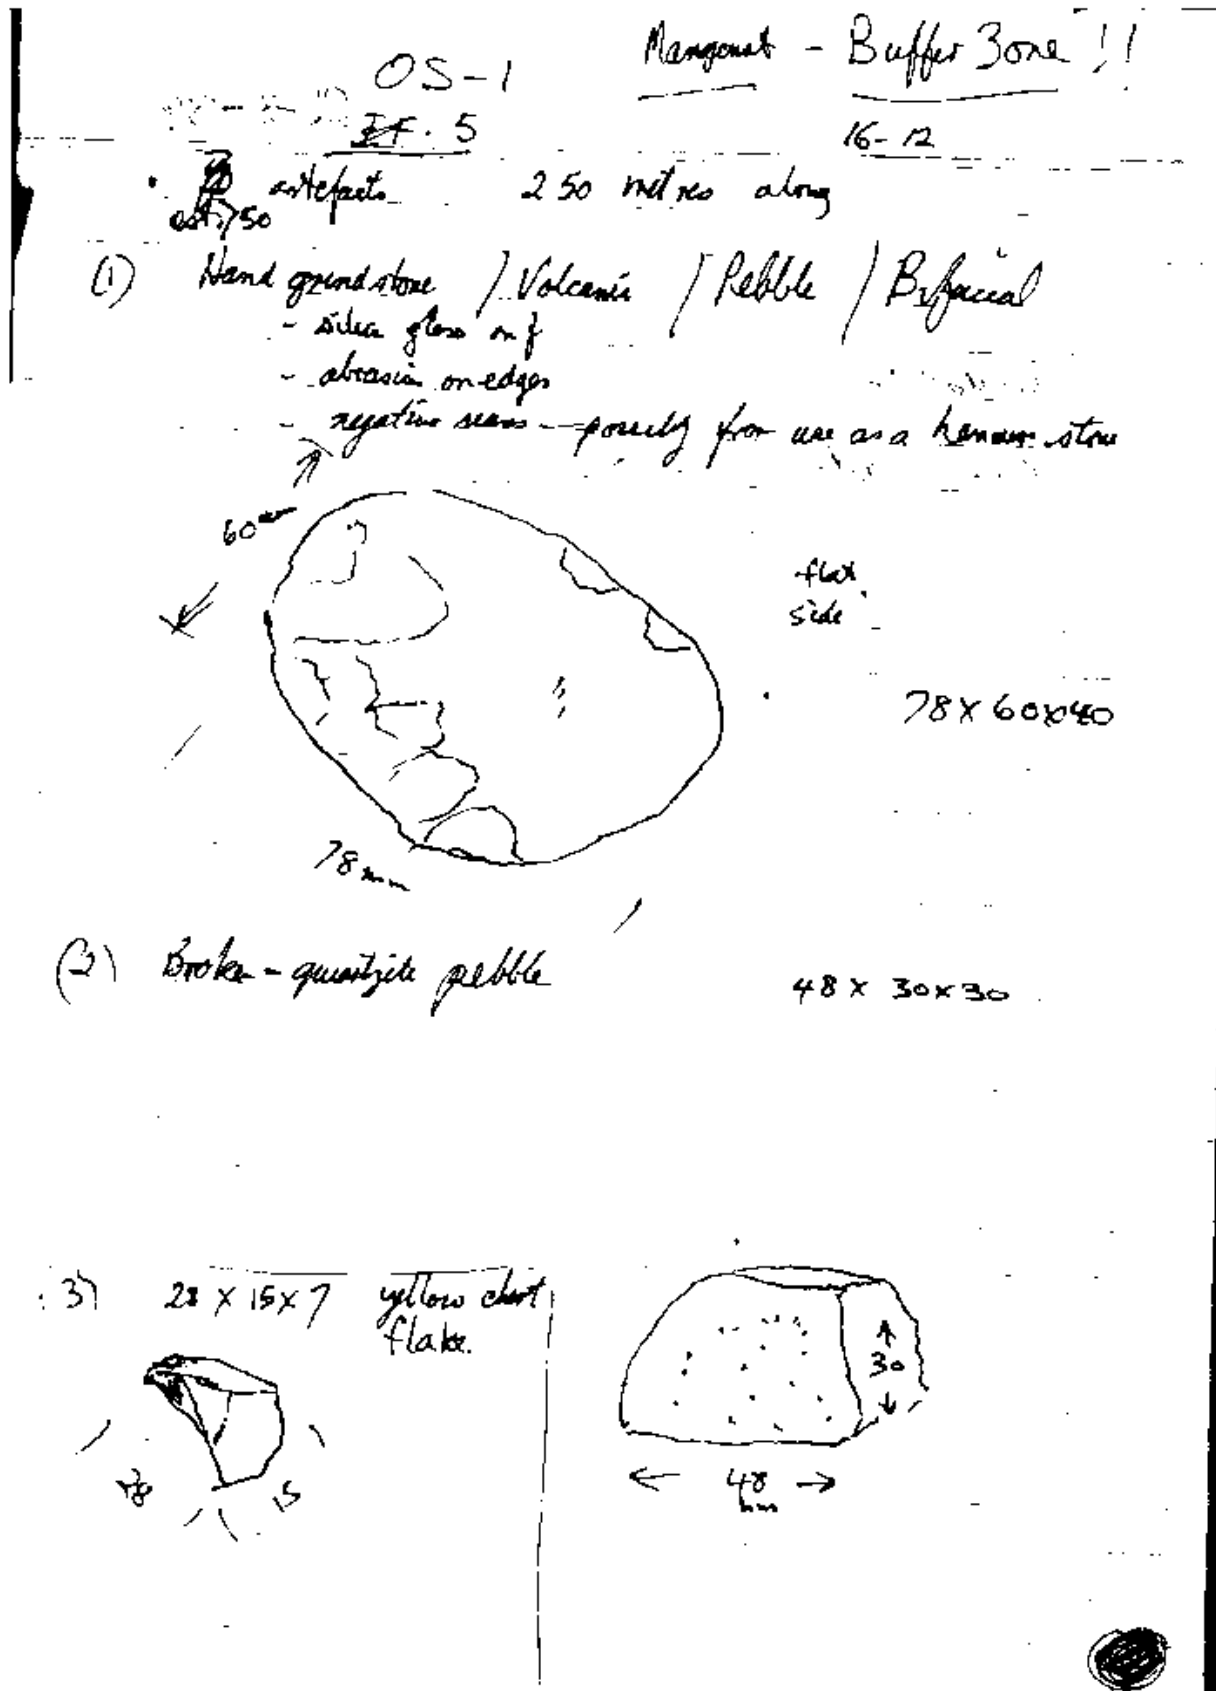 OS-1
- Buffer Zone !!
IF. 5
16-12
artefacts 250 metres along
est. 750
(1) Hand grindstone / Volcanic / Pebble / Bifacial
- silica gloss on f
- abrasion on edges
- negative scars - possibly from use as a hammer stone
60 mm
flat
side
78 x 60 x 40
78 mm
(2) Broken - quartzite pebble 48 x 30 x 30
3) 28 x 15 x 7 yellow chert
flake.
30
28 15
48
mm